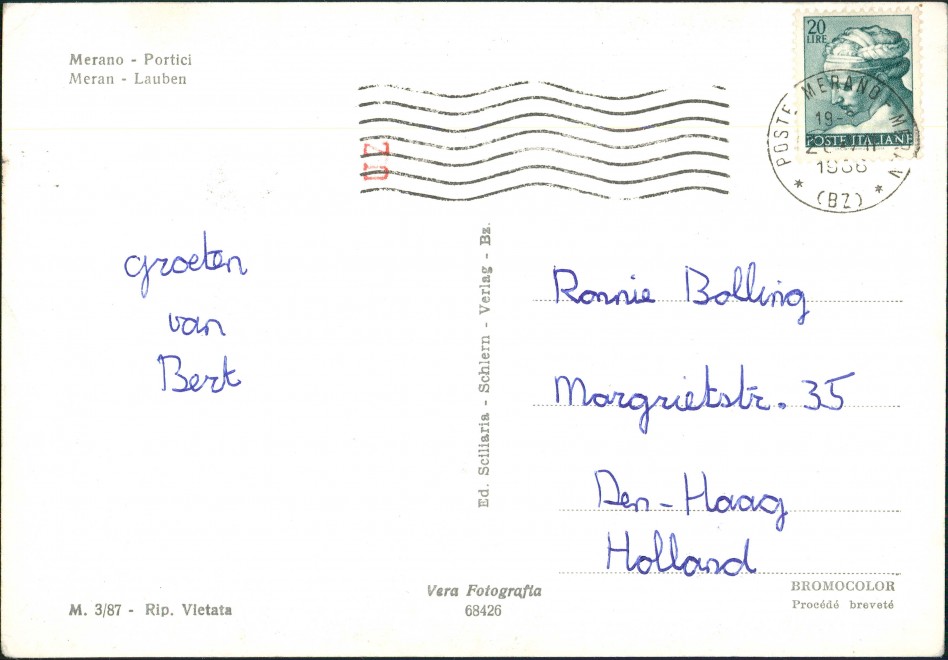 Merano - Portici
Meran - Lauben
20
LIRE
POSTE ITALIANE
POSTE MERANO
19-
(BZ)
groeten
van
Bert
Ed. Sciliaria - Schlern - Verlag - Bz.
Ronnie Bolling
Margrietstr. 35
Den-Haag
Holland
M. 3/87 - Rip. Vietata
Vera Fotografia
68426
BROMOCOLOR
Procédé breveté